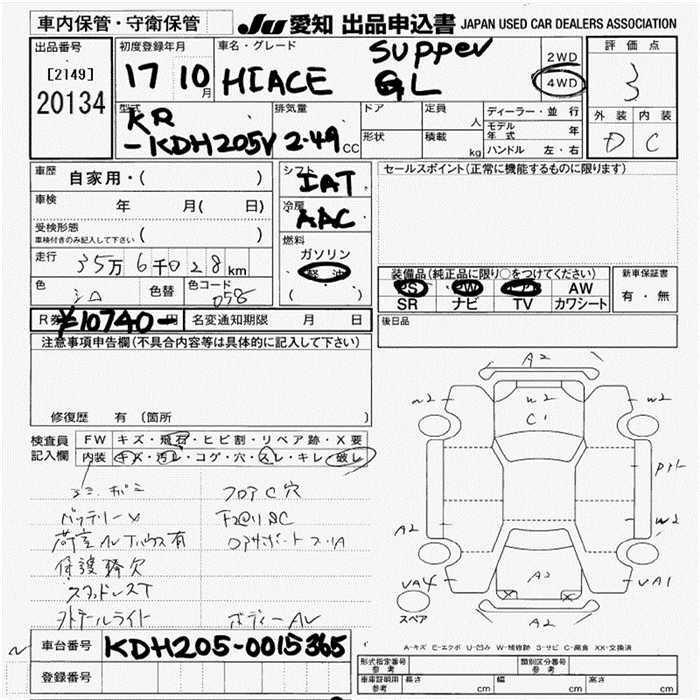 車内保管・守衛保管
JU 愛知 出品申込書 JAPAN USED CAR DEALERS ASSOCIATION
出品番号
[2149]
20134
初度登録年月
17 10月
車名・グレード
HIACE SUPPER GL
2WD
4WD
評価点
3
外装 内装
D C
型式
KR
-KDH205V
排気量
2.49 CC
ドア
定員
人
形状
積載
kg
ディーラー・並行
モデル年式 年
ハンドル 左・右
車歴
自家用・( )
車検
年 月( 日)
受検形態
車検付きのみ記入して下さい
( )
走行
35万6千028km
色
シロ
色替
色コード
058
シフト
IAT
冷房
AAC
燃料
ガソリン
軽油
( )
セールスポイント(正常に機能するものに限ります)
装備品(純正品に限り○をつけてください)
PS PW AW
SR ナビ TV カワシート
新車保証書
有・無
R券 ¥10740- 円
名変通知期限 月 日
後日品
注意事項申告欄(不具合内容等は具体的に記入して下さい)
修復歴 有(箇所 )
検査員記入欄
FW キズ・飛石・ヒビ割・リペア跡・X要
内装 キズ・汚レ・コゲ・穴・スレ・キレ・破レ
フロアC穴
バッテリーX
荷室
スタッドレスT
ボディー
A2
w2
w2
w2
C1
A2
w2
A3
VA4
VA1
A2
スペア
A-キズ E-エクボ U-凹み W-補修跡 S-サビ C-腐食 XX-交換済
車台番号
KDH205-0015365
登録番号
形式指定番号
参考
類別区分番号
参考
車庫証明用
参考
長さ cm
幅 cm
高さ cm